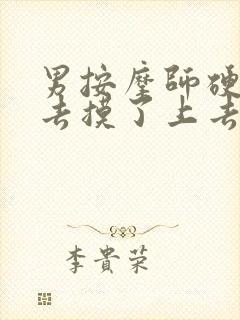 男按摩師硬
去摸了上去
李貴榮